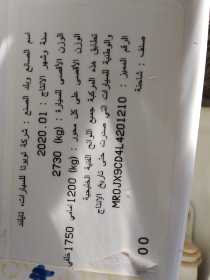 اسم الصانع وبلد الصنع : شركة تويوتا للسيارات، تايلند
سنة وشهر الانتاج : 2020.01
الوزن الأقصى للسيارة : (kg) 2730
الوزن الأقصى على كل محور : (kg) 1200 أمامي 1750 خلفي
تطابق هذه المركبة جميع اللوائح الفنية الخليجية
والوطنية للسيارات التي صدرت حتى تاريخ الانتاج
الرقم المميز : MR0JX9CD4L4201210
صنف : شاحنة
00